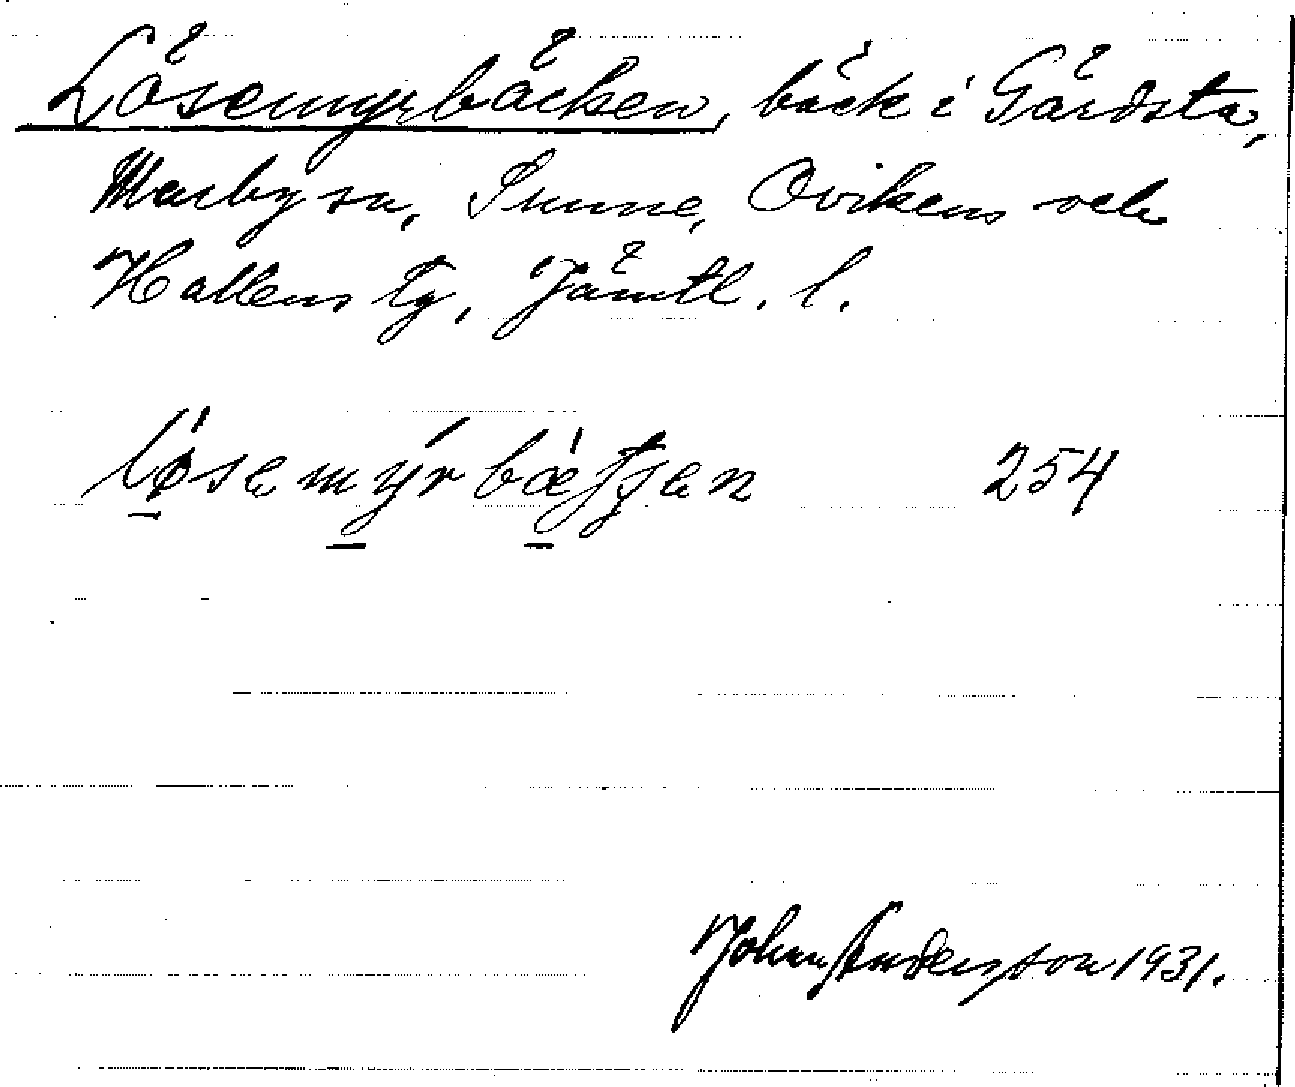 Lösemyrbäcken, bäck i Gärdsta,
Marby sn, Sunne, Ovikens och
Hallens tg, Jämtl. l.
254
John Andersson 1931.